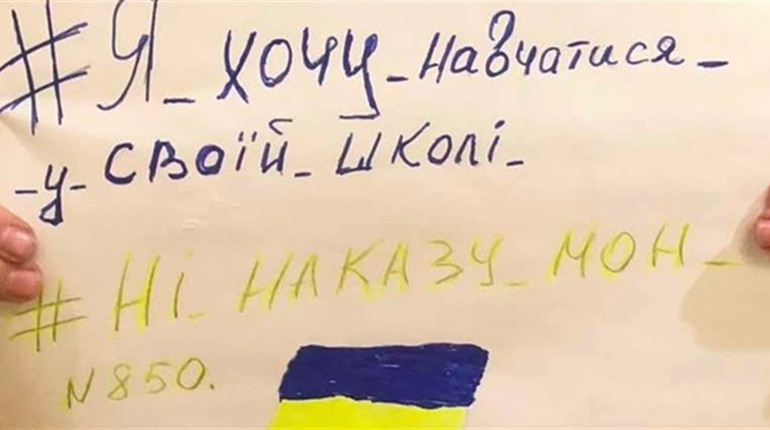 #Я_хочу_навчатися_
_у_своїй_школі_
#Ні_НАКАЗУ_МОН_
N850.